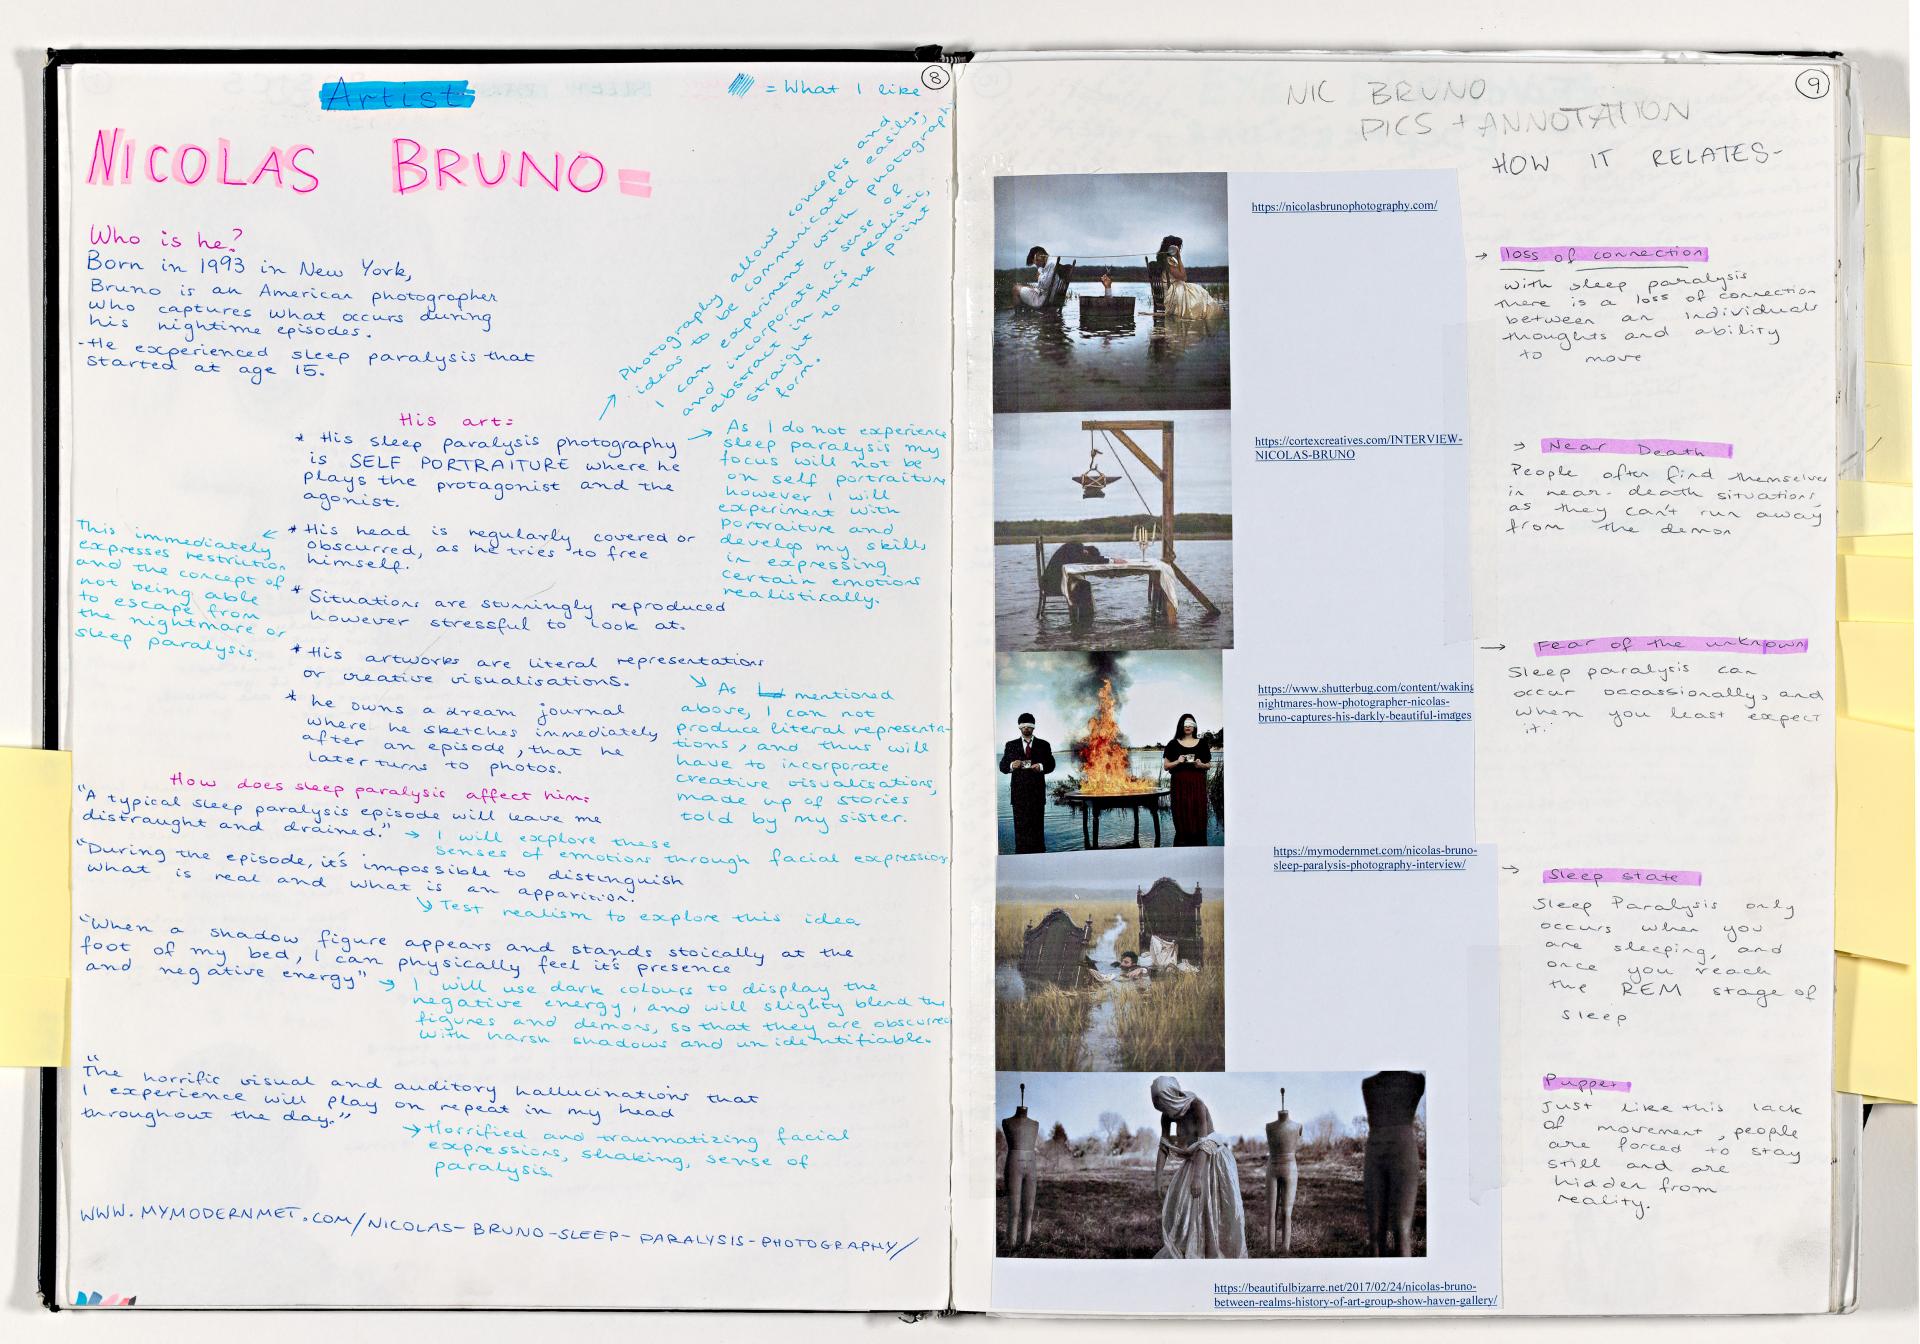 8
Artist
= What I like
NICOLAS BRUNO=
Who is he?
Born in 1993 in New York,
Bruno is an American photographer
who captures what occurs during
his nightime episodes.
-He experienced sleep paralysis that
started at age 15.
Photography allows concepts and
ideas to be communicated easily,
I can experiment with photography
and incorporate a sense of
abstract in this realistic,
straight to the point
form.
His art=
* His sleep paralysis photography
is SELF PORTRAITURE where he
plays the protagonist and the
agonist.
As I do not experience
sleep paralysis my
focus will not be
on self portraiture
however I will
experiment with
portraiture and
develop my skills
in expressing
certain emotions
realistically.
* His head is regularly covered or
obscurred, as he tries to free
himself.
This immediately
expresses restriction
and the concept of
not being able
to escape from
the nightmare or
sleep paralysis.
* Situations are stunningly reproduced
however stressful to look at.
* His artworks are literal representations
or creative visualisations.
As mentioned
above, I can not
produce literal representa-
tions, and thus will
have to incorporate
creative visualisations,
made up of stories
told by my sister.
* he owns a dream journal
where he sketches immediately
after an episode, that he
later turns to photos.
How does sleep paralysis affect him:
"A typical sleep paralysis episode will leave me
distraught and drained." → I will explore these
senses of emotions through facial expression
"During the episode, it's impossible to distinguish
what is real and what is an apparition.
Test realism to explore this idea
"When a shadow figure appears and stands stoically at the
foot of my bed, I can physically feel it's presence
and negative energy" → I will use dark colours to display the
negative energy, and will slighty blend the
figures and demons, so that they are obscured
with harsh shadows and unidentifiable.
"The horrific visual and auditory hallucinations that
I experience will play on repeat in my head
throughout the day."
→ Horrified and traumatizing facial
expressions, shaking, sense of
paralysis.
WWW.MYMODERNMET.COM/NICOLAS-BRUNO-SLEEP-PARALYSIS-PHOTOGRAPHY/
9
NIC BRUNO
PICS + ANNOTATION
HOW IT RELATES-
https://nicolasbrunophotography.com/
→ loss of connection
with sleep paralysis
there is a loss of connection
between an individuals
thoughts and ability
to move
https://cortexcreatives.com/INTERVIEW-
NICOLAS-BRUNO
→ Near Death
People often find themselves
in near-death situations
as they can't run away
from the demon
https://www.shutterbug.com/content/waking
nightmares-how-photographer-nicolas-
bruno-captures-his-darkly-beautiful-images
→ Fear of the unknown
Sleep paralysis can
occur occassionally, and
when you least expect
it.
https://mymodernmet.com/nicolas-bruno-
sleep-paralysis-photography-interview/
→ Sleep state
Sleep Paralysis only
occurs when you
are sleeping, and
once you reach
the REM stage of
sleep
Puppet
Just like this lack
of movement, people
are forced to stay
still and are
hidden from
reality.
https://beautifulbizarre.net/2017/02/24/nicolas-bruno-
between-realms-history-of-art-group-show-haven-gallery/